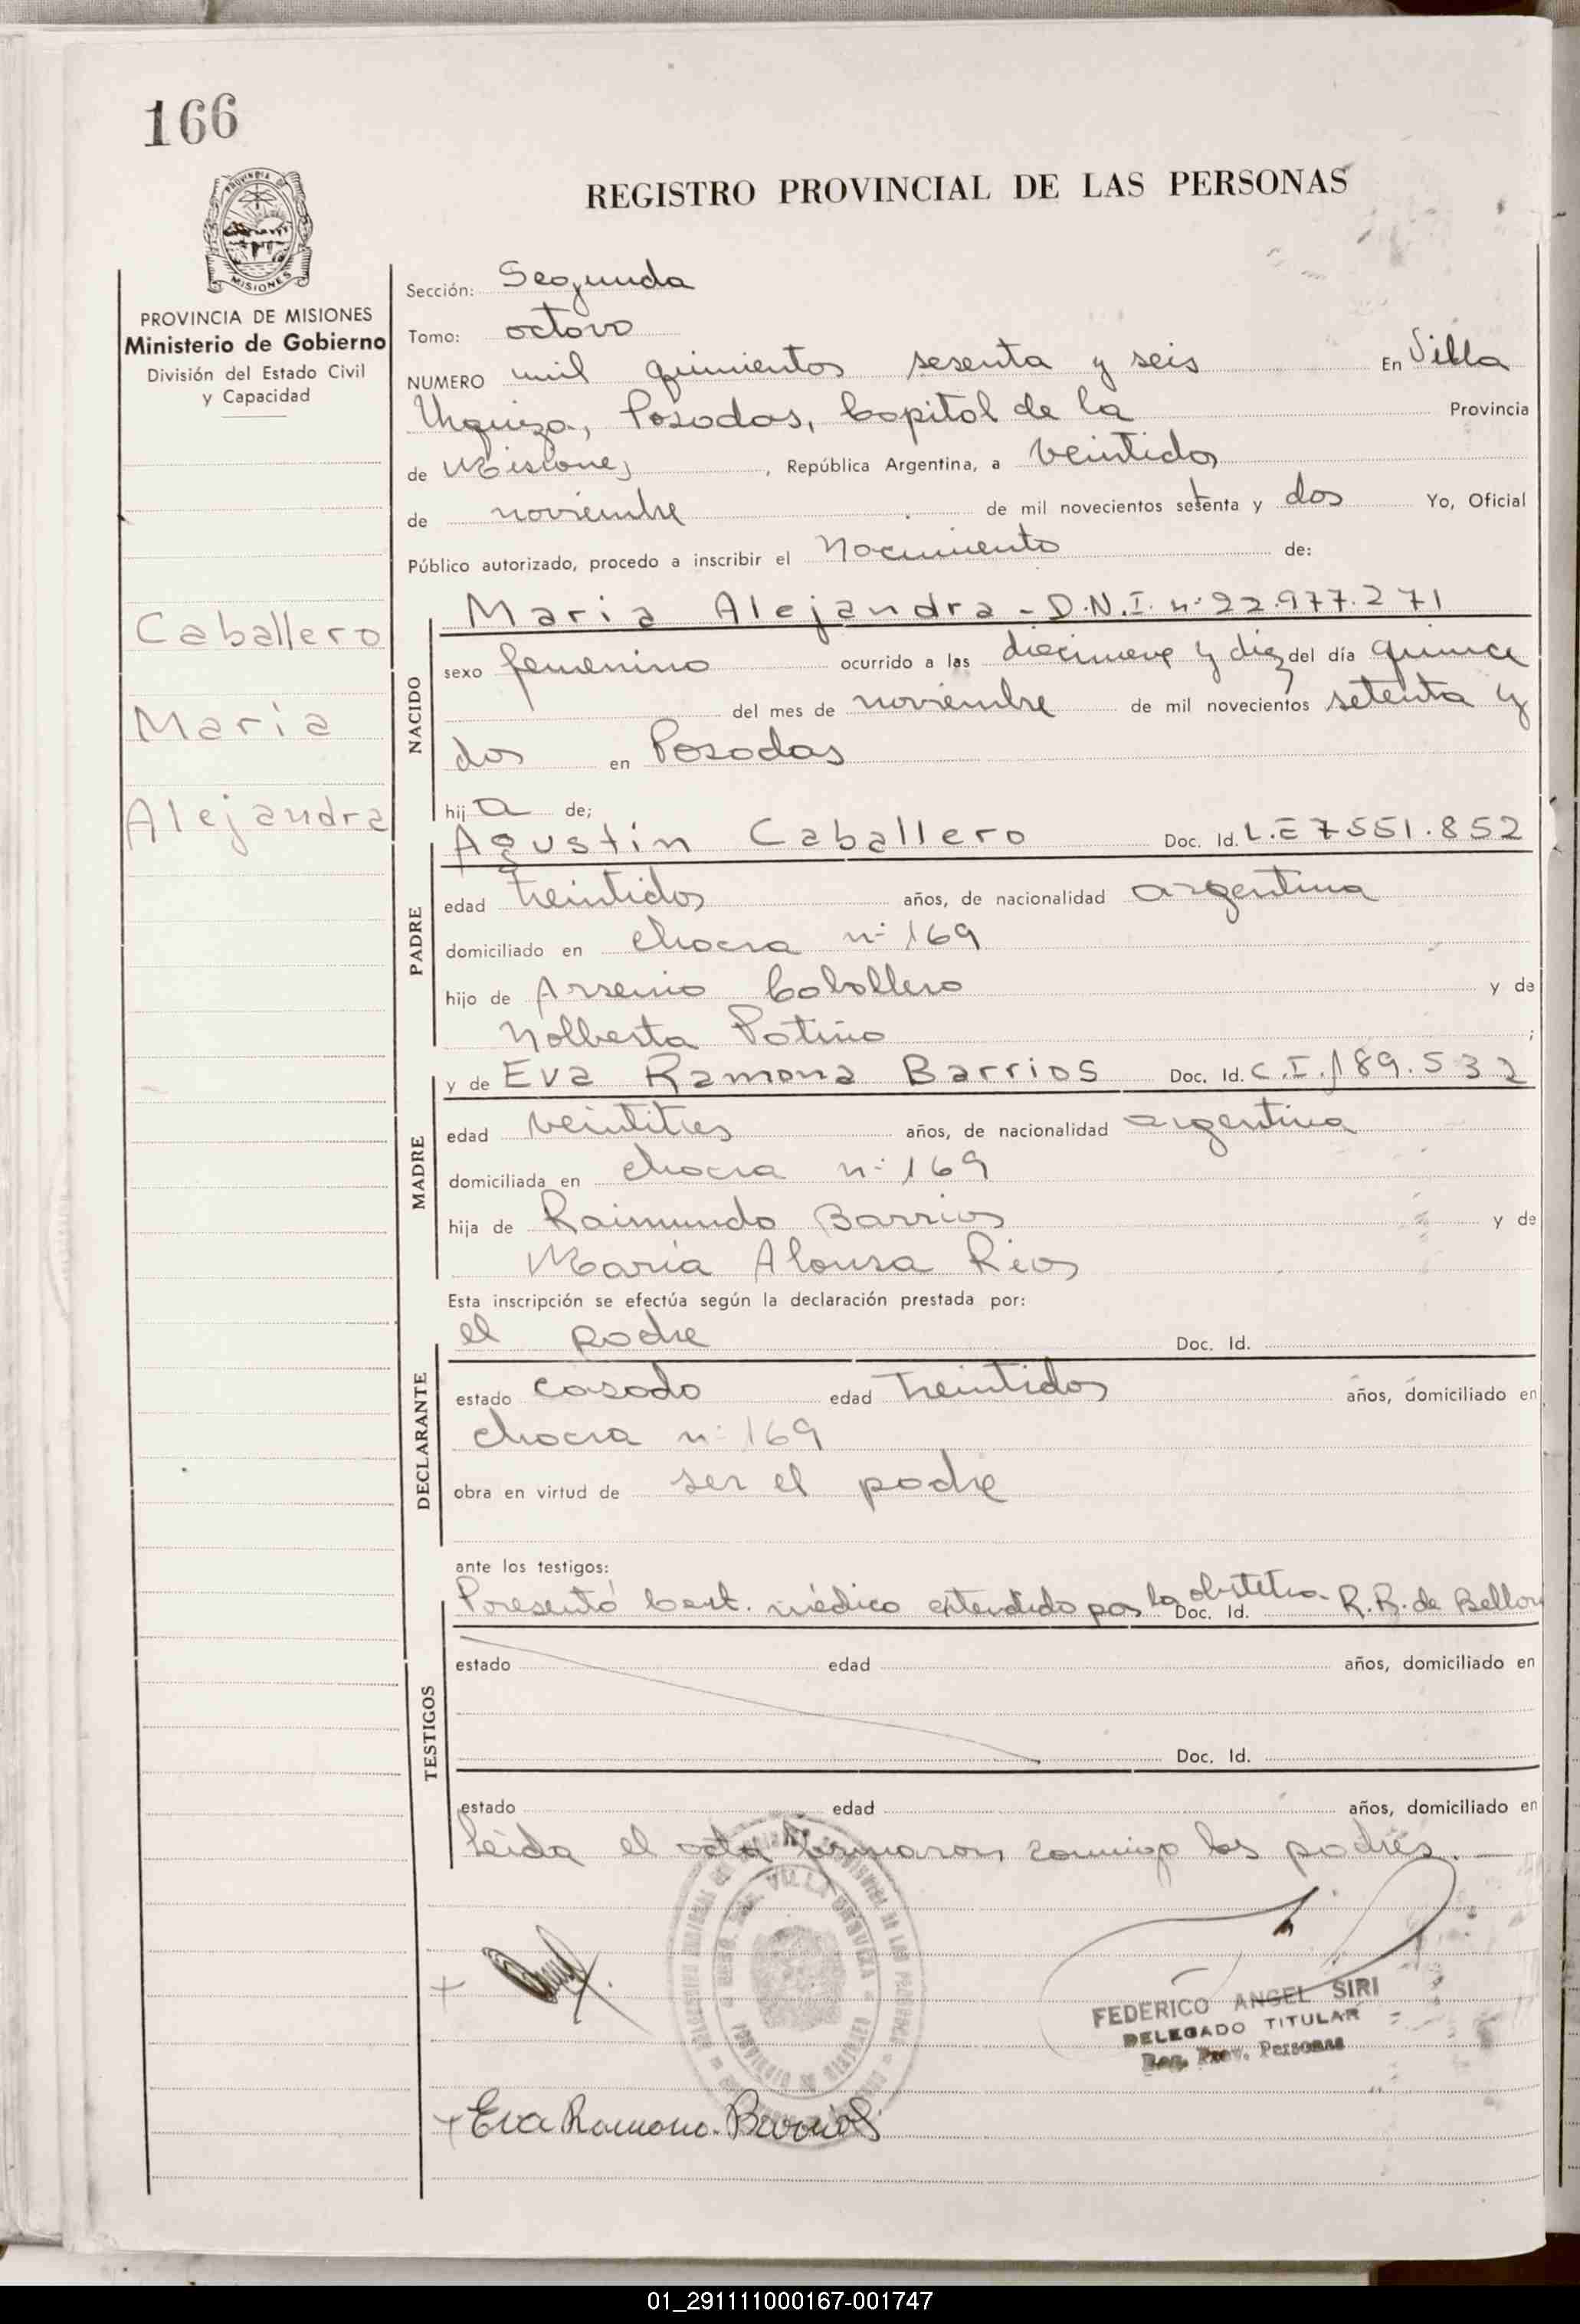 166
PROVINCIA DE
MISIONES
REGISTRO PROVINCIAL DE LAS PERSONAS
PROVINCIA DE MISIONES
Ministerio de Gobierno
División del Estado Civil
y Capacidad
Caballero
Maria
Alejandra
Sección: Segunda
Tomo: octavo
NUMERO mil quinientos sesenta y seis En Villa
Urquiza, Posadas, Capital de la Provincia
de Misiones, República Argentina, a veintidos
de noviembre de mil novecientos setenta y dos Yo, Oficial
Público autorizado, procedo a inscribir el Nacimiento de:
NACIDO
Maria Alejandra - D.N.I. nº 22.977.271
sexo femenino ocurrido a las diecinueve y diez del día quince
del mes de noviembre de mil novecientos setenta y
dos en Posadas
hij a de;
PADRE
Agustin Caballero Doc. Id. L.E 7551.852
edad treintidos años, de nacionalidad argentina
domiciliado en chacra nº 169
hijo de Arsenio Caballero y de
Nolberta Patiño ;
MADRE
y de Eva Ramona Barrios Doc. Id. C.I. 189.532
edad veintitres años, de nacionalidad argentina
domiciliada en chacra nº 169
hija de Raimundo Barrios y de
Maria Alonsa Rios
Esta inscripción se efectúa según la declaración prestada por:
DECLARANTE
el padre Doc. Id.
estado casado edad treintidos años, domiciliado en
chacra nº 169
obra en virtud de ser el padre
ante los testigos:
TESTIGOS
Presentó Cert. médico extendido por la obstetra R.R. de Bellon
Doc. Id.
estado edad años, domiciliado en
Doc. Id.
estado edad años, domiciliado en
leida el acta firmaron conmigo los padres.
VILLA URQUIZA
FEDERICO ANGEL SIRI
DELEGADO TITULAR
Reg. Prov. Personas
Eva Ramona Barrios
01_291111000167-001747